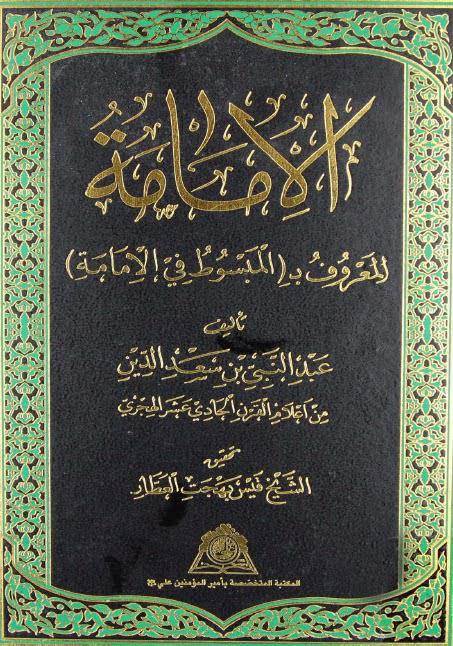 الإِمَامَةُ
المَعْرُوفُ بِـ (المَبْسُوطُ فِي الإِمَامَة)
تأليف
عَبْدِ النَّبِيِّ بْنِ سَعْدِ الدِّينِ
مِنْ أَعْلَامِ القَرْنِ الحَادِي عَشَرَ الهِجْرِيّ
تحقيق
الشَّيْخ قَيْس بَهْجَت العَطَّار
المكتبة المتخصصة بأمير المؤمنين علي